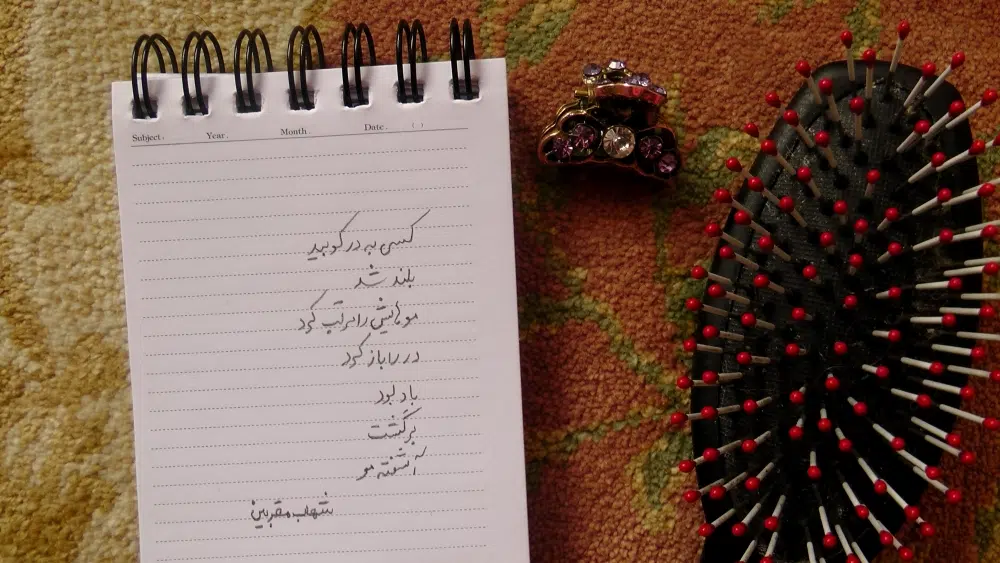 Subject. Year. Month. Date. ( )
کسی به در کوبید
بلند شد
موهایش را مرتب کرد
در را باز کرد
باد بود
برگشت
آشفته مو
شهاب مقربین